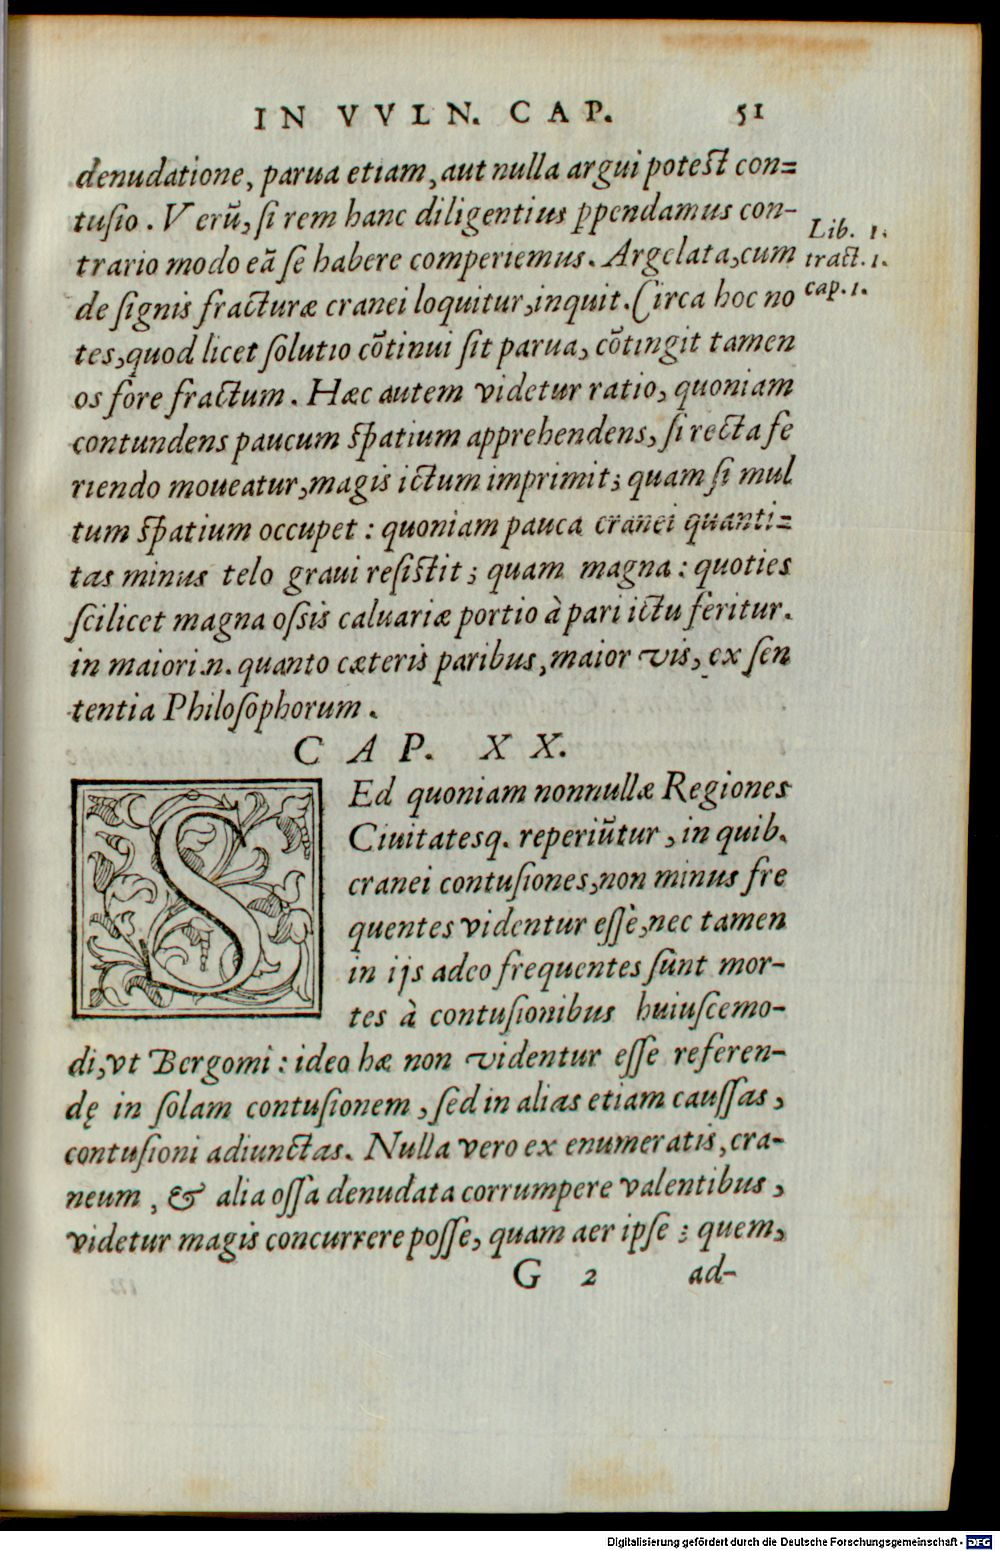 IN VVLN. CAP. 51
denudatione, parua etiam, aut nulla argui potest con=
tusio. Verũ, si rem hanc diligentius ꝓpendamus con-
trario modo eã se habere comperiemus. Argelata, cum
de signis fracturæ cranei loquitur, inquit. Circa hoc no
tes, quod licet solutio cõtinui sit parua, cõtingit tamen
os fore fractum. Hæc autem videtur ratio, quoniam
contundens paucum spatium apprehendens, si recta fe
riendo moueatur, magis ictum imprimit; quam si mul
tum spatium occupet: quoniam pauca cranei quanti=
tas minus telo graui resistit; quam magna: quoties
scilicet magna ossis caluariæ portio à pari ictu feritur.
in maiori.n. quanto cæteris paribus, maior vis, ex sen
tentia Philosophorum.
Lib. 1.
tract. 1.
cap. 1.
CAP. XX.
SEd quoniam nonnullæ Regiones
Ciuitatesq. reperiũtur, in quib.
cranei contusiones, non minus fre
quentes videntur esse, nec tamen
in ijs adeo frequentes sunt mor-
tes à contusionibus huiuscemo-
di, vt Bergomi: ideo hæ non videntur esse referen-
dę in solam contusionem, sed in alias etiam caussas,
contusioni adiunctas. Nulla vero ex enumeratis, cra-
neum, & alia ossa denudata corrumpere valentibus,
videtur magis concurrere posse, quam aer ipse: quem,
G 2 ad-
Digitalisierung gefördert durch die Deutsche Forschungsgemeinschaft - DFG